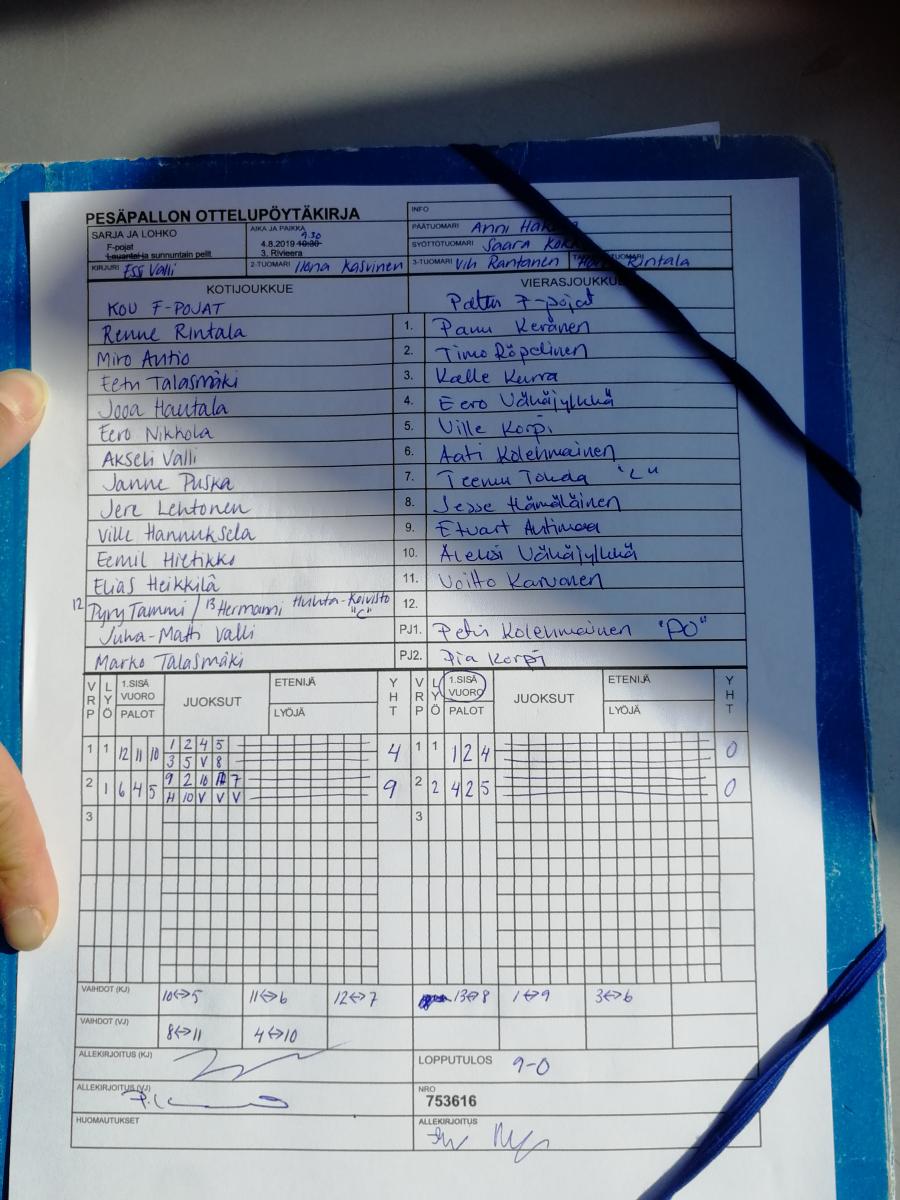 PESÄPALLON OTTELUPÖYTÄKIRJA
INFO
SARJA JA LOHKO
F-pojat
Lauantai ja sunnuntain pelit
AIKA JA PAIKKA
9.30
4.8.2019 10:30
3, Rivieera
PÄÄTUOMARI Anni
SYÖTTÖTUOMARI Saara
KIRJURI Essi Valli
2-TUOMARI Ilona Kasvinen
3-TUOMARI Rantanen
Rintala
KOTIJOUKKUE
KOU F-POJAT
VIERASJOUKKUE
F-pojat
Renne Rintala 1. Panu Keränen
Miro Autio 2. Timo Röpelinen
Eetu Talasmäki 3. Kalle Kurra
Jooa Hautala 4. Eero Vähäjylkkä
Eero Nikkola 5. Ville Korpi
Akseli Valli 6. Aati Kolehmainen
Janne Puska 7. Teemu "C"
Jere Lehtonen 8. Jesse Hämäläinen
Ville Hannuksela 9. Etuart Autimaa
Eemil Hietikko 10. Aleksi Vähäjylkkä
Elias Heikkilä 11. Voitto Karvonen
12 Pyry Tammi / 13 Hermanni Huhta-Koivisto "C" 12.
Juha-Matti Valli PJ1. Petri Kolehmainen "PO"
Marko Talasmäki PJ2. Pia Korpi
VRP LYÖ 1.SISÄ VUORO PALOT JUOKSUT ETENIJÄ LYÖJÄ YHT VRP LYÖ 1.SISÄ VUORO PALOT JUOKSUT ETENIJÄ LYÖJÄ YHT
1 1 12 11 10 1 2 4 5 4 1 1 1 2 4 0
3 5 V 8
2 1 6 4 5 9 2 10 7 9 2 2 4 2 5 0
H 10 V V V
3 3
VAIHDOT (KJ) 10↔5 11↔6 12↔7 13↔8 1↔9 3↔6
VAIHDOT (VJ) 8↔11 4↔10
ALLEKIRJOITUS (KJ)
LOPPUTULOS 9-0
ALLEKIRJOITUS (VJ)
NRO
753616
HUOMAUTUKSET
ALLEKIRJOITUS